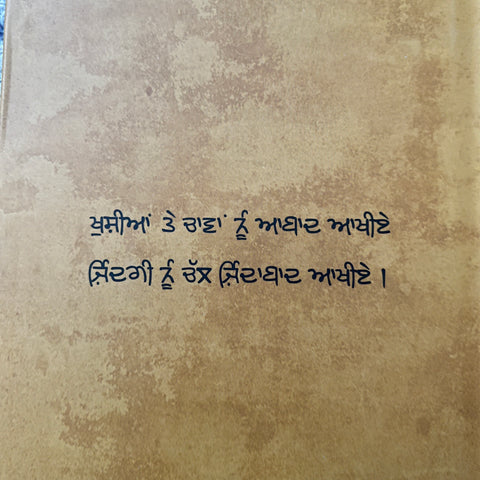 ਖ਼ੁਸ਼ੀਆਂ ਤੇ ਚਾਵਾਂ ਨੂੰ ਆਬਾਦ ਆਖੀਏ
ਜ਼ਿੰਦਗੀ ਨੂੰ ਚੱਲ ਜ਼ਿੰਦਾਬਾਦ ਆਖੀਏ।